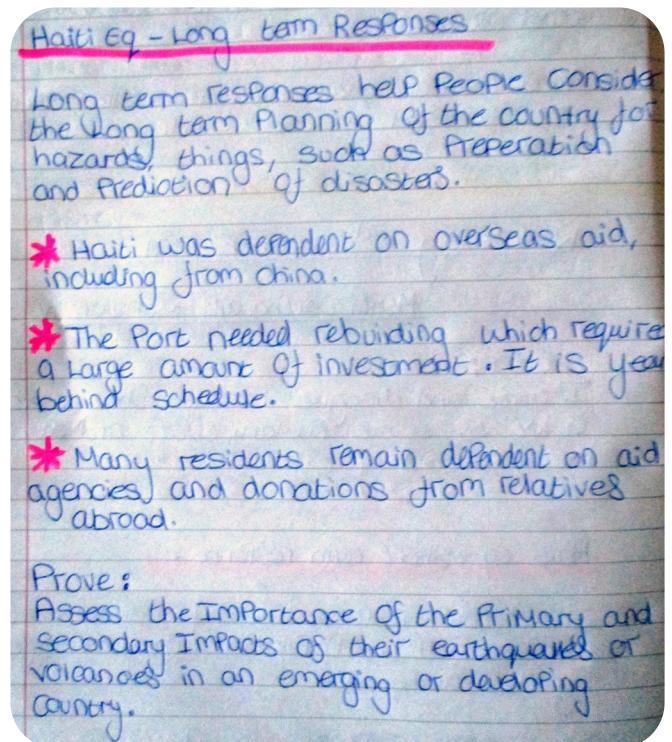 Haiti Eq - Long term Responses
Long term responses help People Consider
the Long term Planning of the country for
hazards, things, such as Preperation
and Prediction of disasters.
* Haiti was dependent on overseas aid,
including from China.
* The Port needed rebuilding which require
a Large amount of investment. It is year
behind schedule.
* Many residents remain dependent on aid
agencies and donations from relatives
abroad.
Prove:
Assess the Importance of the Primary and
secondary Impacts of their earthquakes or
volcanoes in an emerging or developing
Country.